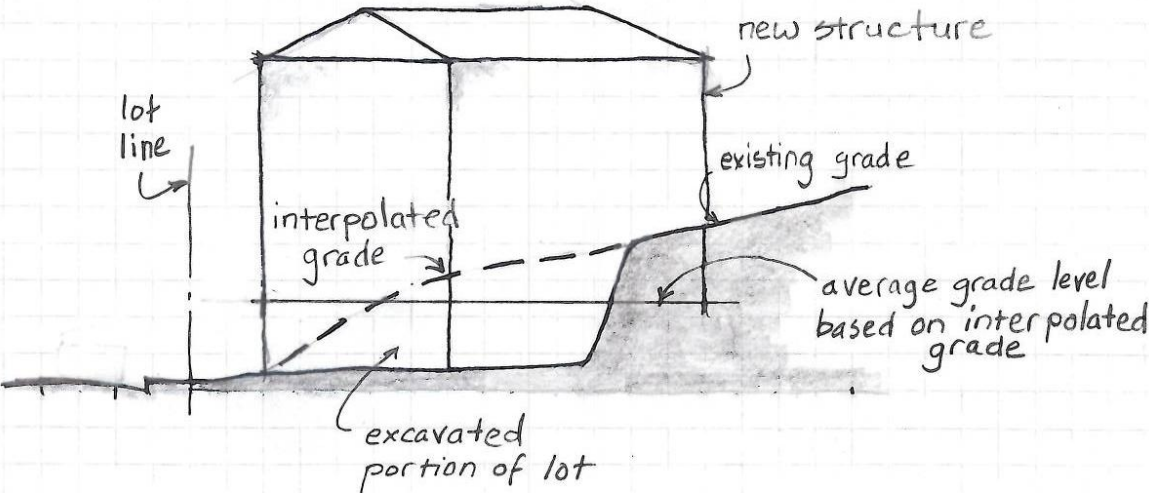 new structure
lot
line
existing grade
interpolated
grade
average grade level
based on interpolated
grade
excavated
portion of lot